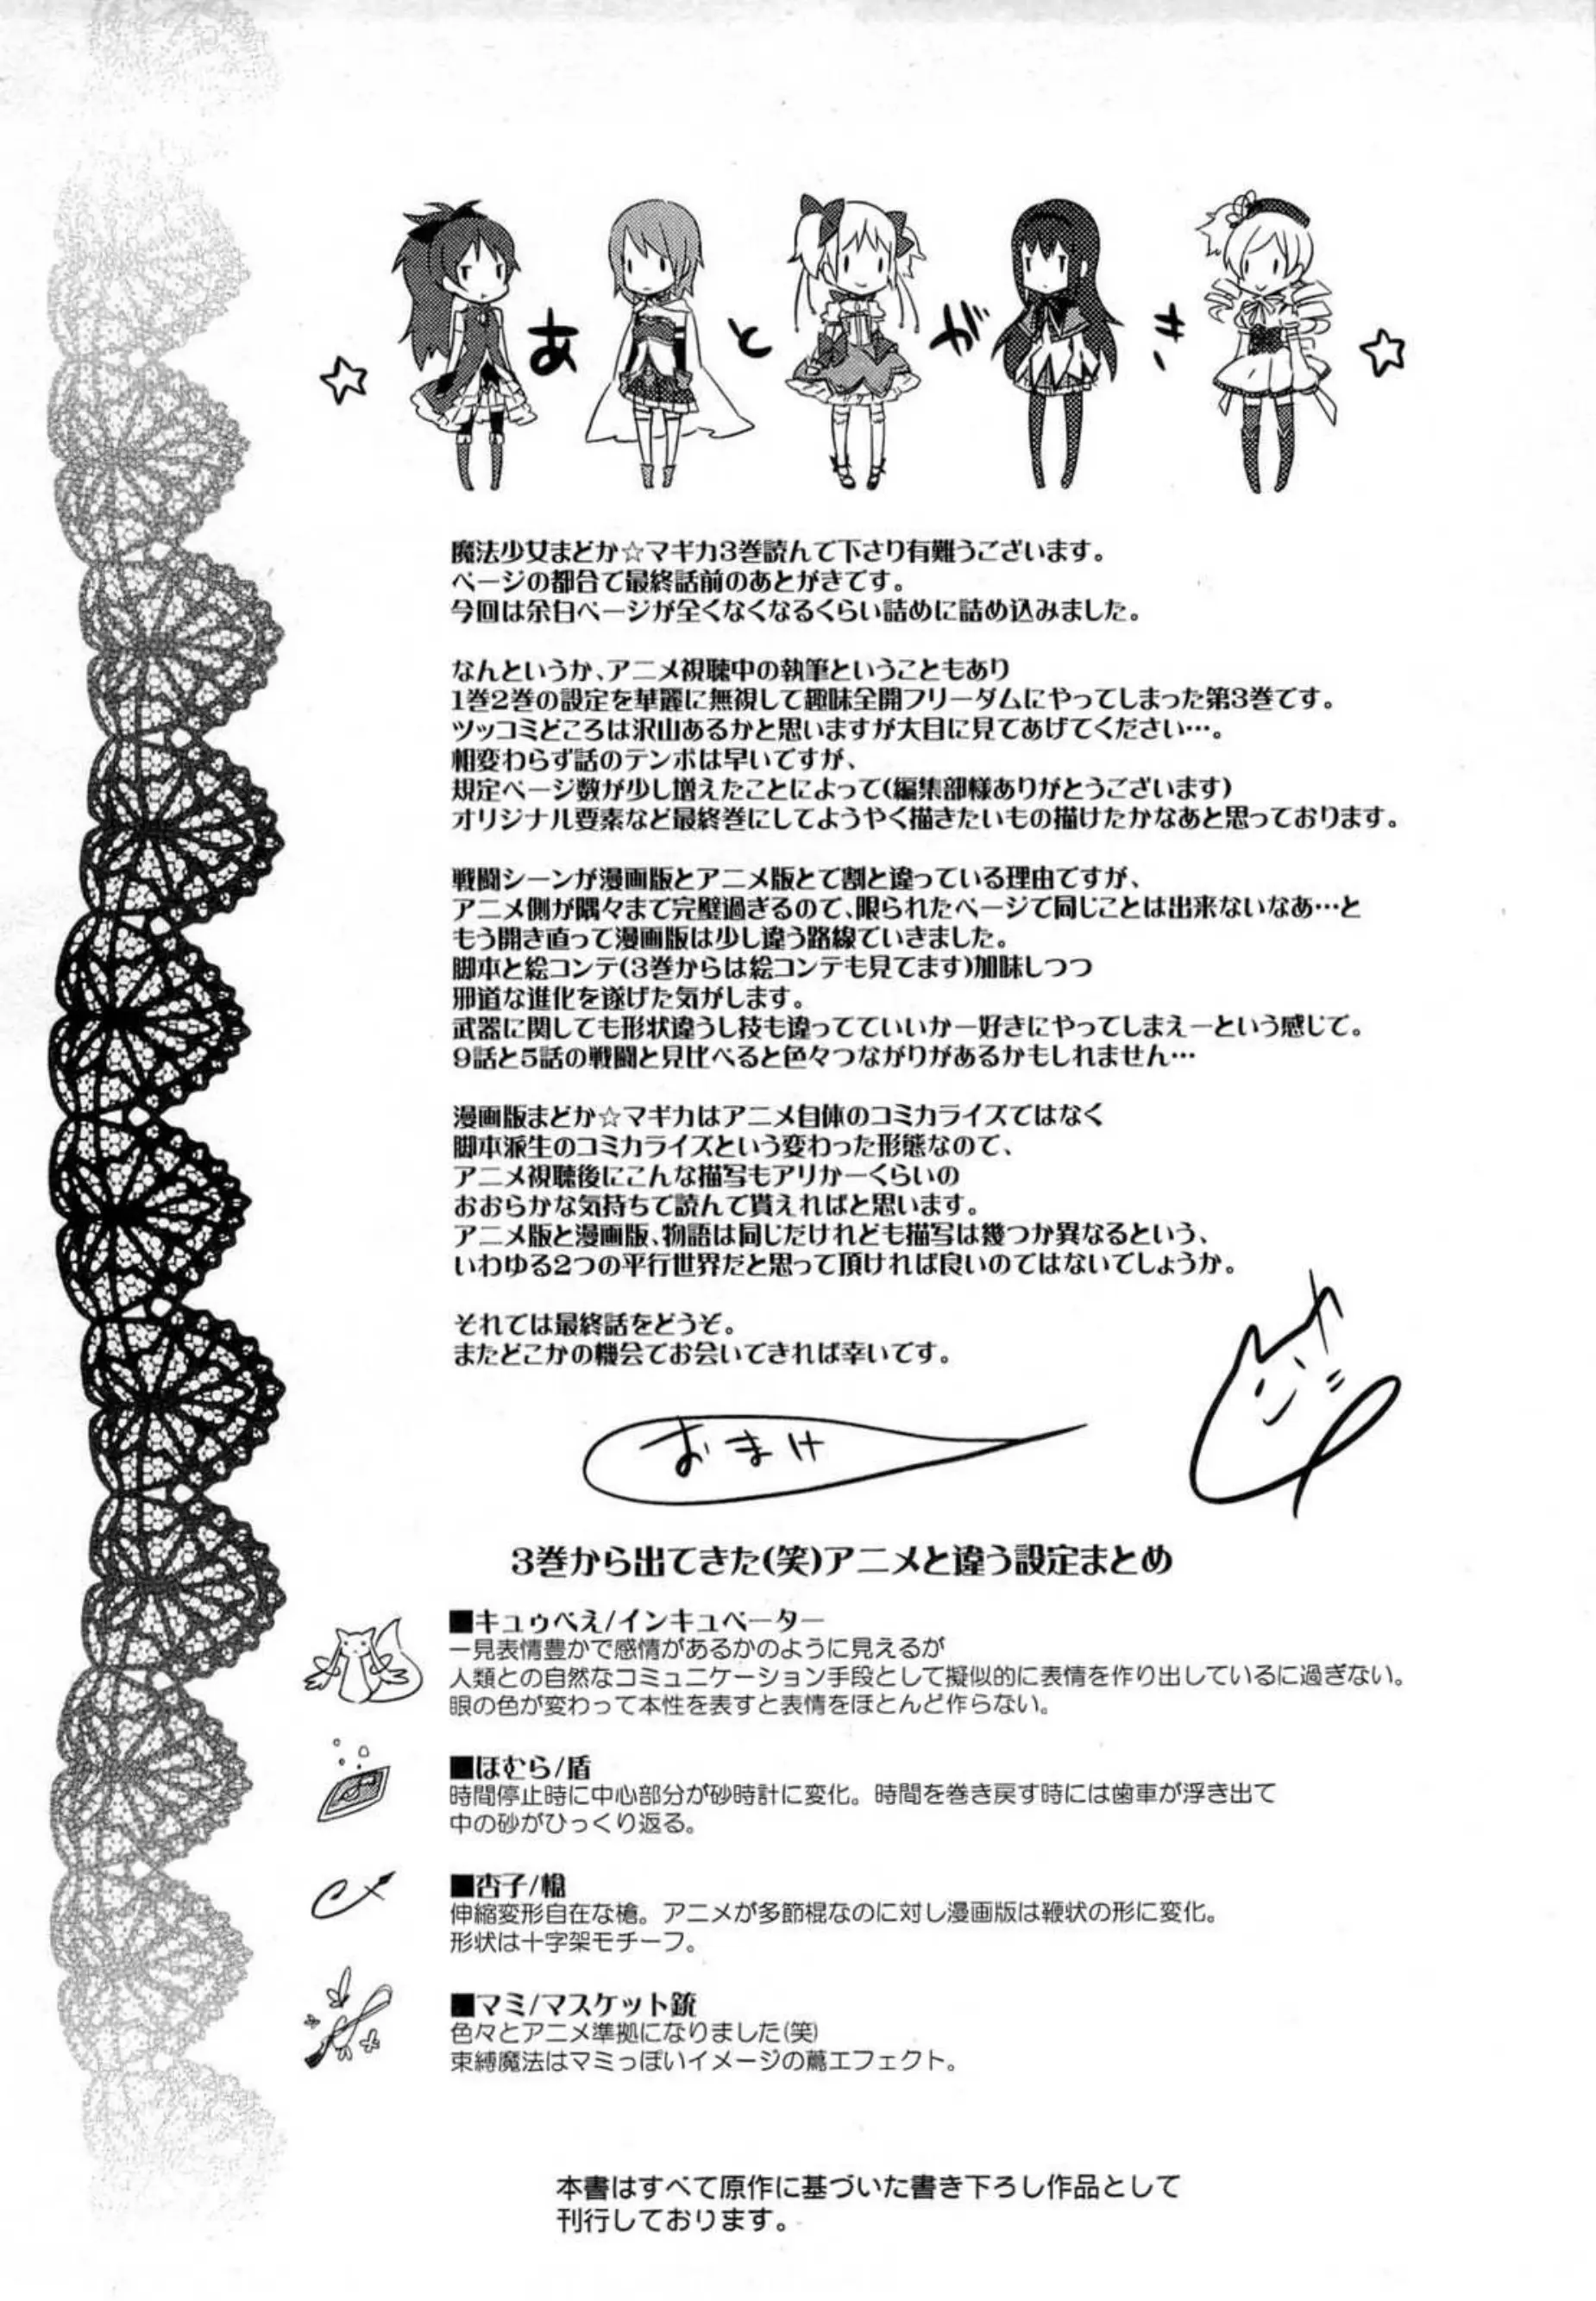 ☆あとがき☆
魔法少女まどか☆マギカ3巻読んで下さり有難うございます。
ページの都合で最終話前のあとがきです。
今回は余白ページが全くなくなるくらい詰めに詰め込みました。
なんというか、アニメ視聴中の執筆ということもあり
1巻2巻の設定を華麗に無視して趣味全開フリーダムにやってしまった第3巻です。
ツッコミどころは沢山あるかと思いますが大目に見てあげてください…。
相変わらず話のテンポは早いですが、
規定ページ数が少し増えたことによって(編集部様ありがとうございます)
オリジナル要素など最終巻にしてようやく描きたいもの描けたかなあと思っております。
戦闘シーンが漫画版とアニメ版とで割と違っている理由ですが、
アニメ側が隅々まで完璧過ぎるので、限られたページで同じことは出来ないなあ…と
もう開き直って漫画版は少し違う路線でいきました。
脚本と絵コンテ(3巻からは絵コンテも見てます)加味しつつ
邪道な進化を遂げた気がします。
武器に関しても形状違うし技も違ってていいかー好きにやってしまえーという感じで。
9話と5話の戦闘と見比べると色々つながりがあるかもしれません…
漫画版まどか☆マギカはアニメ自体のコミカライズではなく
脚本派生のコミカライズという変わった形態なので、
アニメ視聴後にこんな描写もアリかーくらいの
おおらかな気持ちで読んで貰えればと思います。
アニメ版と漫画版、物語は同じだけれども描写は幾つか異なるという、
いわゆる2つの平行世界だと思って頂ければ良いのではないでしょうか。
それでは最終話をどうぞ。
またどこかの機会でお会いできれば幸いです。
おまけ
3巻から出てきた(笑)アニメと違う設定まとめ
■キュゥべえ/インキュベーター
一見表情豊かで感情があるかのように見えるが
人類との自然なコミュニケーション手段として擬似的に表情を作り出しているに過ぎない。
眼の色が変わって本性を表すと表情をほとんど作らない。
■ほむら/盾
時間停止時に中心部分が砂時計に変化。時間を巻き戻す時には歯車が浮き出て
中の砂がひっくり返る。
■杏子/槍
伸縮変形自在な槍。アニメが多節棍なのに対し漫画版は鞭状の形に変化。
形状は十字架モチーフ。
■マミ/マスケット銃
色々とアニメ準拠になりました(笑)
束縛魔法はマミっぽいイメージの蔦エフェクト。
本書はすべて原作に基づいた書き下ろし作品として
刊行しております。